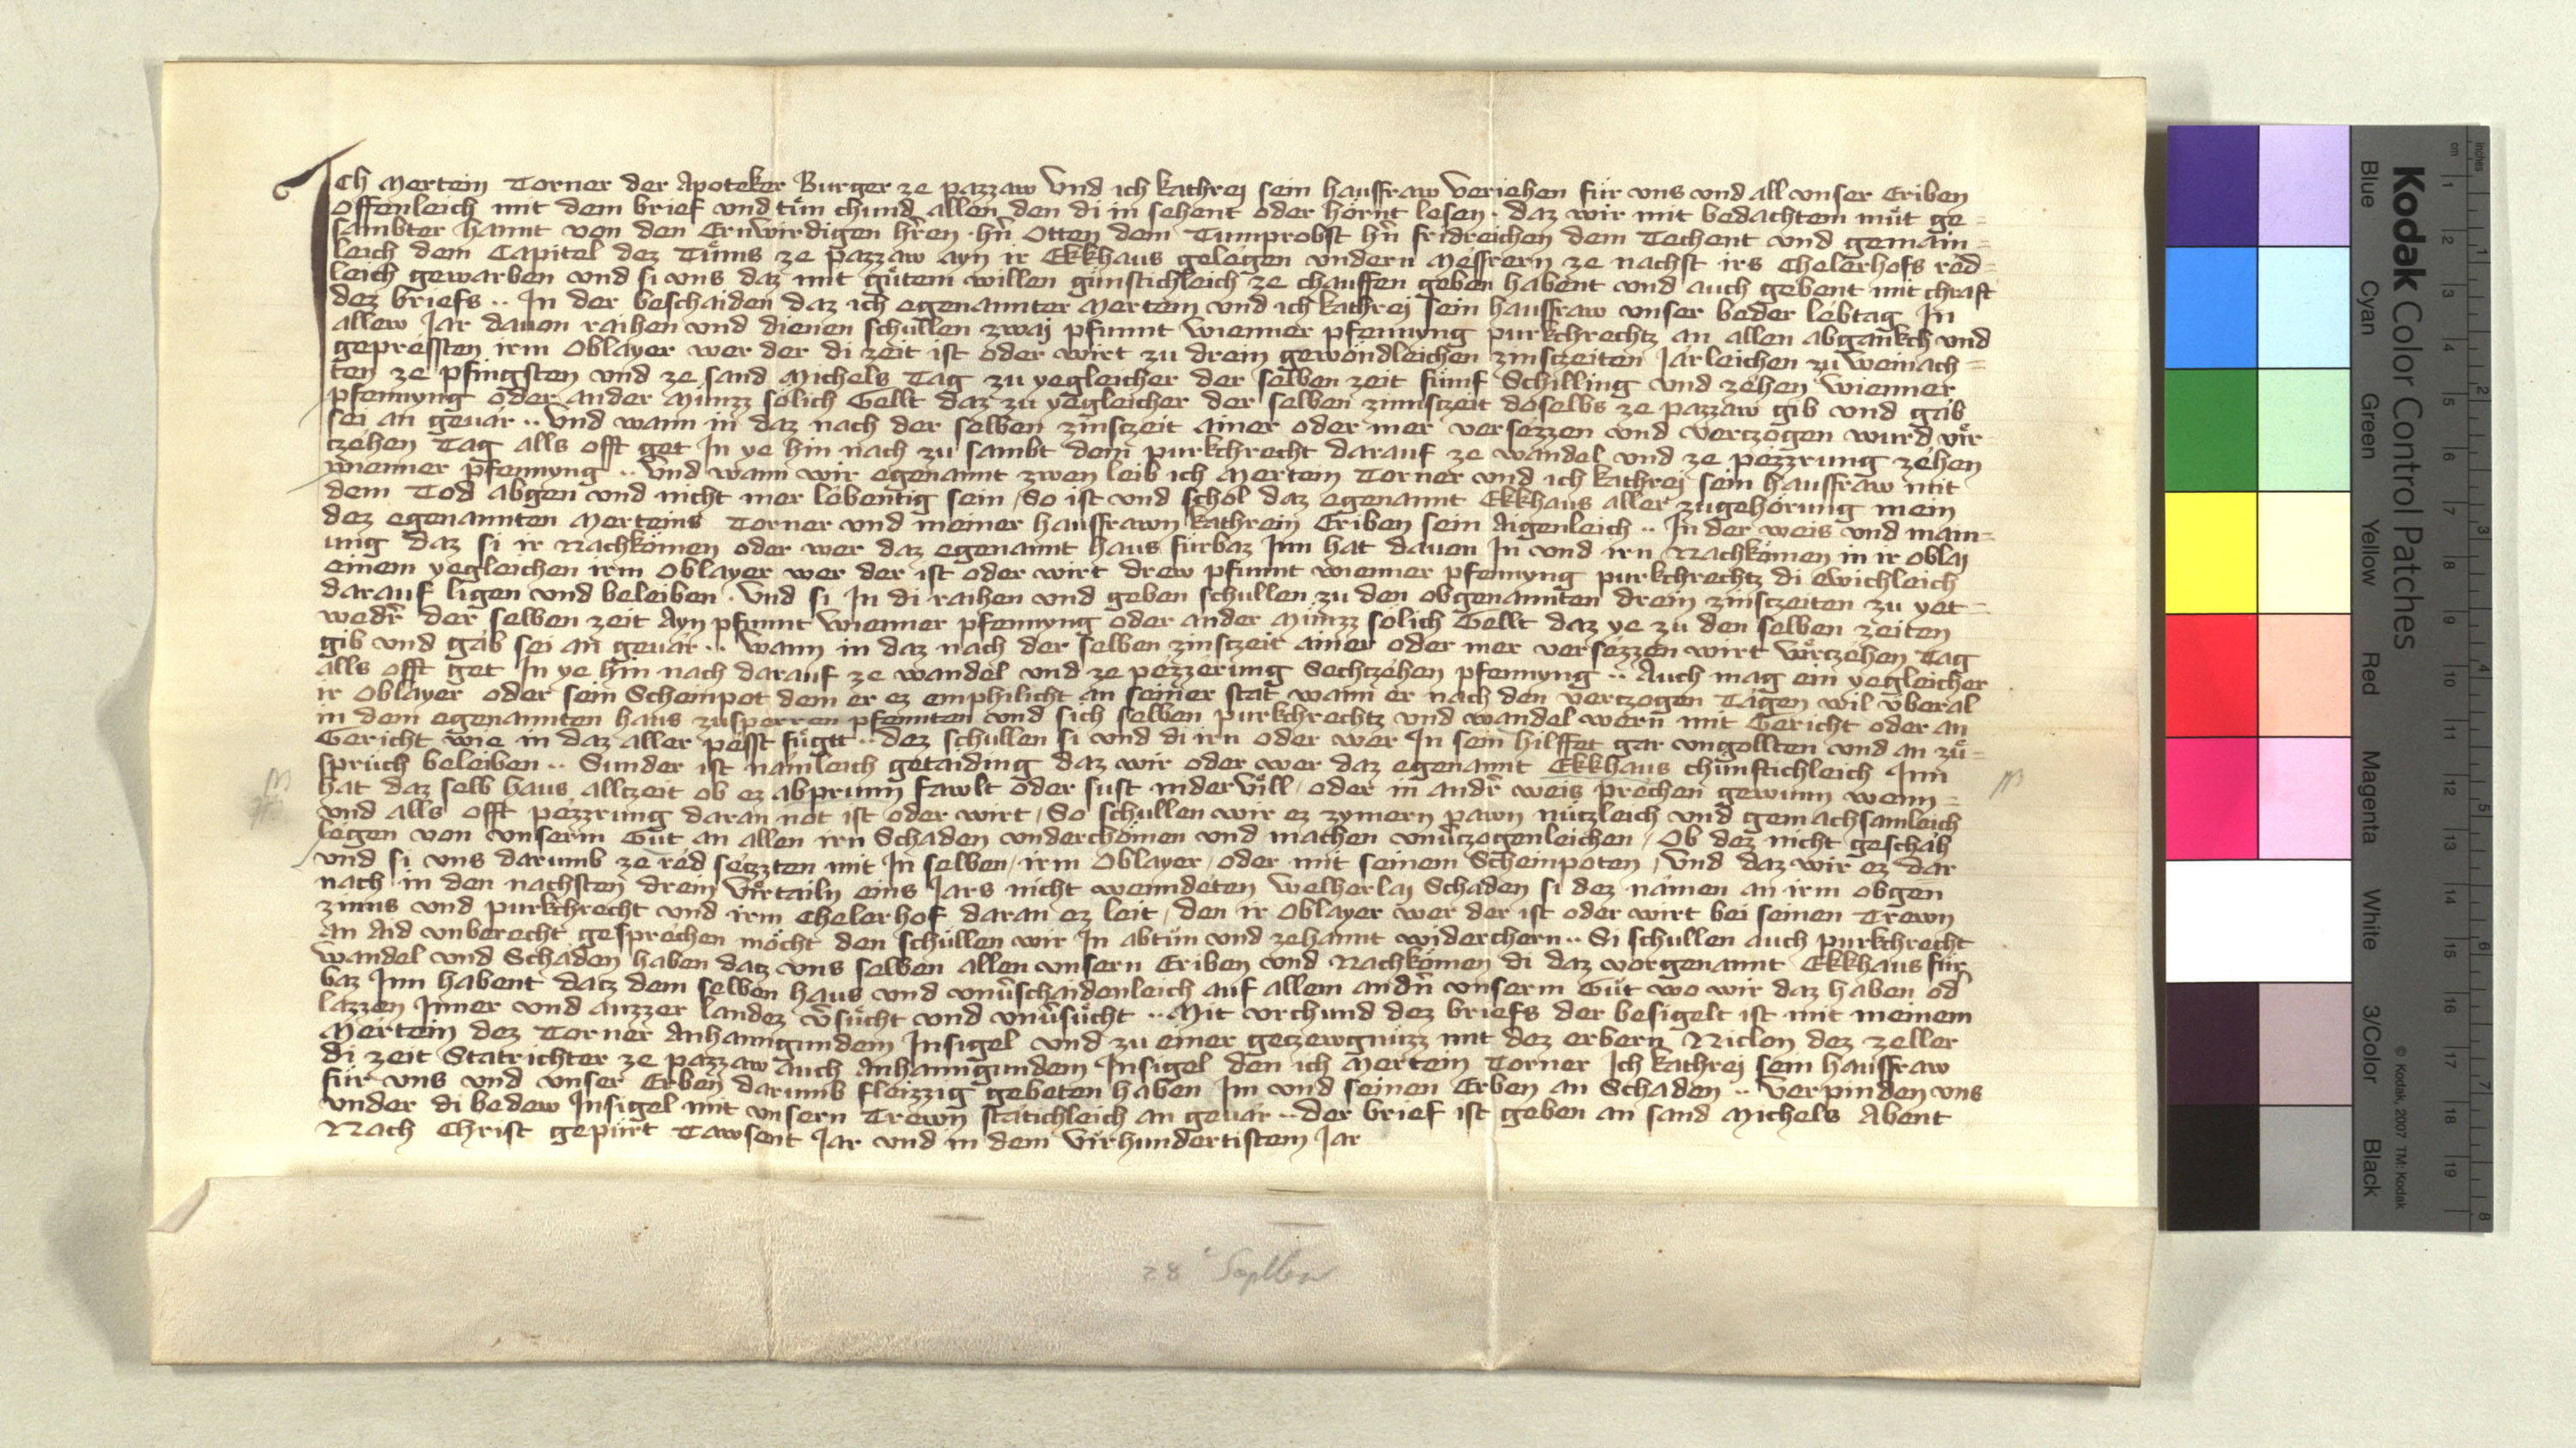 Ich Mertein Torner der Apoteker Burger ze pazzaw Vnd ich kathrej sein hauffraw Veriehen für vns vnd all vnser Eriben
Offenleich mit dem brief vnd tün chund allen den di in sehent oder hörnt lesen · daz wir mit bedachtem müt ge=
sambter hannt von den Erwirdigen h̄ren · hn̄ Otten dem Tumprobst hn̄ fridreichen dem Techent vnd gemain=
leich dem Capitel dez Tüms ze pazzaw ayn ir Ekkhaus gelegen vndern Messrern ze nachst irs Chelerhofs red=
leich gewarben vnd si vns daz mit gütem willen günstichleich ze chauffen geben habent vnd auch gebent mit chraft
dez briefs ·· In der beschaiden daz ich egenannter Mertein vnd ich kathrej sein hauffraw vnser beder lebtag In
allew Jar dauon raihen vnd dienen schullen zwaj pfunnt wienner pfennyng purkchrechtz an allen abgankch vnd
gepressten irm Oblayer wer der di zeit ist oder wirt zu drein gewöndleichen zinstzeiten Jarleichen zu weinach=
ten ze pfingsten vnd ze sand Michels Tag zu yegleicher der selben zeit fümf Schilling vnd zehen wienner
pfennyng oder ander Münzz sölich Gellt daz zu yegleicher der selben zinnstzeit doselbs ze pazzaw gib vnd gäb
sei an geuár ·· Vnd wann in daz nach der selben zinstzeit ainer oder mer versezzen vnd vertzogen wurd vir
tzehen Tag alls offt get In ye hin nach zu sambt dem purkchrecht darauf ze wandel vnd ze pezzrung zehen
wienner pfennyng ·· Vnd wann wir egenannt zwen leib ich Mertein Torner vnd ich kathrej sein hauffraw mit
dem Tod abgen vnd nicht mer lebentig sein / So ist vnd schol daz egenannt Ekkhaus aller zugehörung mein
dez egenannten Merteins Torner vnd meiner hauffrawn kathrein Eriben sein Aigenleich ·· In der weis vnd main=
ung daz si ir nachkömen oder wer daz egenannt haus fürbaz Inn hat dauon In vnd irn Nachkömen in ir oblaj
einem yegleichen irm Oblayer wer der ist oder wirt drew pfunnt wienner pfennyng purkchrechtz di ewichleich
darauf ligen vnd beleiben · Vnd si In di raihen vnd geben schullen zu den obgenannten drein zinstzeiten zu yet=
wedr̄ der selben zeit Ayn pfunnt wienner pfennyng oder ander Münzz sölich Gellt daz ye zu den selben zeiten
gib vnd gäb sei an geuár ·· wann in daz nach der selben zinstzeit ainer oder mer versezzen wirt virtzehen Tag
alls offt get In ye hin nach darauf ze wandel vnd ze pezzerung Sechtzehen pfennyng ·· Auch mag ein yegleicher
ir Oblayer oder sein Scheinpot dem er ez emphilicht an seiner stat wann er nach den vertzogen Tägen wil vberal
in dem egenannten haus zusperren pfennten vnd sich selben purkchrechtz vnd wandel wern mit Gericht oder an
Gericht wie in daz aller pesst fügtt ·· dez schullen si vnd di irn oder wer In sein hilffet gar vngollten vnd an zü=
sprüch beleiben ·· Sunder ist namleich getaiding daz wir oder wer daz egenannt Ekkhaus chünftichleich Inn
hat daz selb haus alltzeit ob ez abprunn fawlt oder sust niderviell / oder in andr̄ weis prechen gewunn wenn=
vnd alls offt pezzrung daran not ist oder wirt / So schullen wir ez zymern pawn nützleich vnd gemachsamleich
legen von vnserm Güt an allen irn Schaden vnderchömen vnd machen vnūtzogenleichen / Ob dez nicht geschäh
vnd si vns darumb ze red setzten mit In selben / irm Oblayer / oder mit seinem Scheinpoten / Vnd daz wir ez dar
nach in den nachsten drein Virtailn eins Jars nicht wenndeten Welherlaj Schaden si dez nämen an irm obgen
zinns vnd purkchrecht vnd irm Chelerhof daran ez leit / den ir Oblayer wer der ist oder wirt bei seinen Trewn
an Aid vnberecht gesprechen möcht den schullen wir In abtün vnd zehannt widerchern ·· Si schullen auch purkchrecht
wandel vnd Schaden haben datz vns selben allen vnsern Eriben vnd Nachkömen di daz vorgenannt Ekkhaus für
baz Inn habent datz dem selben haus vnd vnūschaidenleich auf allem andn̄ vnserm Güt wo wir daz haben od̄
lazzen Inner vnd auzzer landez v̄sücht vnd vnūsücht ·· Mit vrchund dez briefs der besigelt ist mit meinem
Mertein dez Torner Anhanngundem Insigel vnd zu einer getzewgnüzz mit dez erbern Niclen dez zeller
di zeit Statrichter ze pazzaw auch Anhanngundem Insigel den ich Mertein Torner Ich kathrej sein hauffraw
für vns vnd vnser Erben darumb fleizzig gebeten haben Im vnd seinen Erben an Schaden ·· Verpinden vns
vnder di bedew Insigel mit vnsern Trewn stätichleich an geuár ·· der brief ist geben an sand Michels Abent
Nach Christ gepürt Tawsent Jar vnd in dem Virhundertistem Jar
28 Septbr
Kodak Color Control Patches
Blue Cyan Green Yellow Red Magenta White 3/Color Black
© Kodak, 2007 TM: Kodak
cm 1 2 3 4 5 6 7 8 9 10 11 12 13 14 15 16 17 18 19
inches 1 2 3 4 5 6 7 8